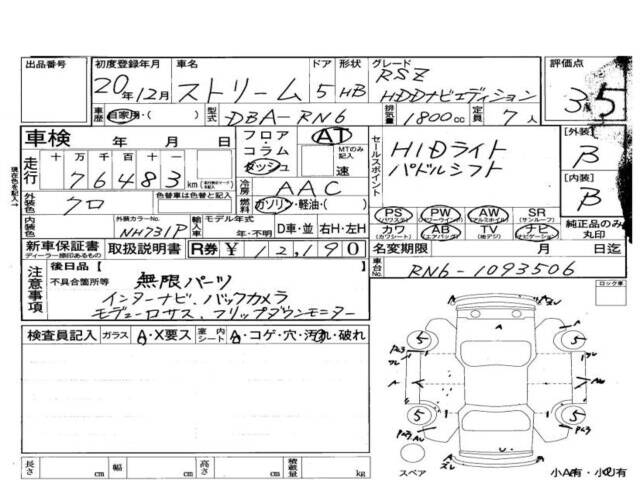 出品番号 初度登録年月 車名 ドア 形状 グレード 評価点
20年12月 ストリーム 5 HB RSZ HDDナビエディション 3.5
車歴 自家用・( ) 型式 DBA-RN6 排気量 1800cc 定員 7人
車検 年 月 日 フロア コラム ダッシュ AT MTのみ記入 速
走行 十万千百十一 76483 km
セールスポイント HIDライト パドルシフト
[外装] B
[内装] B
現在色を記入→ 外装色 クロ 色替車は色替と記入 冷房 AAC
燃料 ガソリン・軽油・( )
内装色 外装カラーNo. NH731P 輸入車 モデル年式 年・不明 D車・並 右H・左H
PS (パワステ) PW (パワーウインド) AW (アルミホイル) SR (サンルーフ)
カワ (カワシート) AB (エアバッグ) TV (地デジ) ナビ (ナビゲーション)
純正品のみ丸印
新車保証書 ディーラー捺印あるもの 取扱説明書 R券 ¥12,190 名変期限 月 日迄
注意事項 後日品[ ]
不具合箇所等 無限パーツ
インターナビ、バックカメラ
モデューロサス、フリップダウンモニター
車台No. RN6-1093506
ロック車
検査員記入 ガラス A・X要ス 室内シート A・コゲ・穴・汚れ・破れ
A
5 5
5 5
スペア 小A有・小U有
長さ cm 幅 cm 高さ cm 積載量 kg